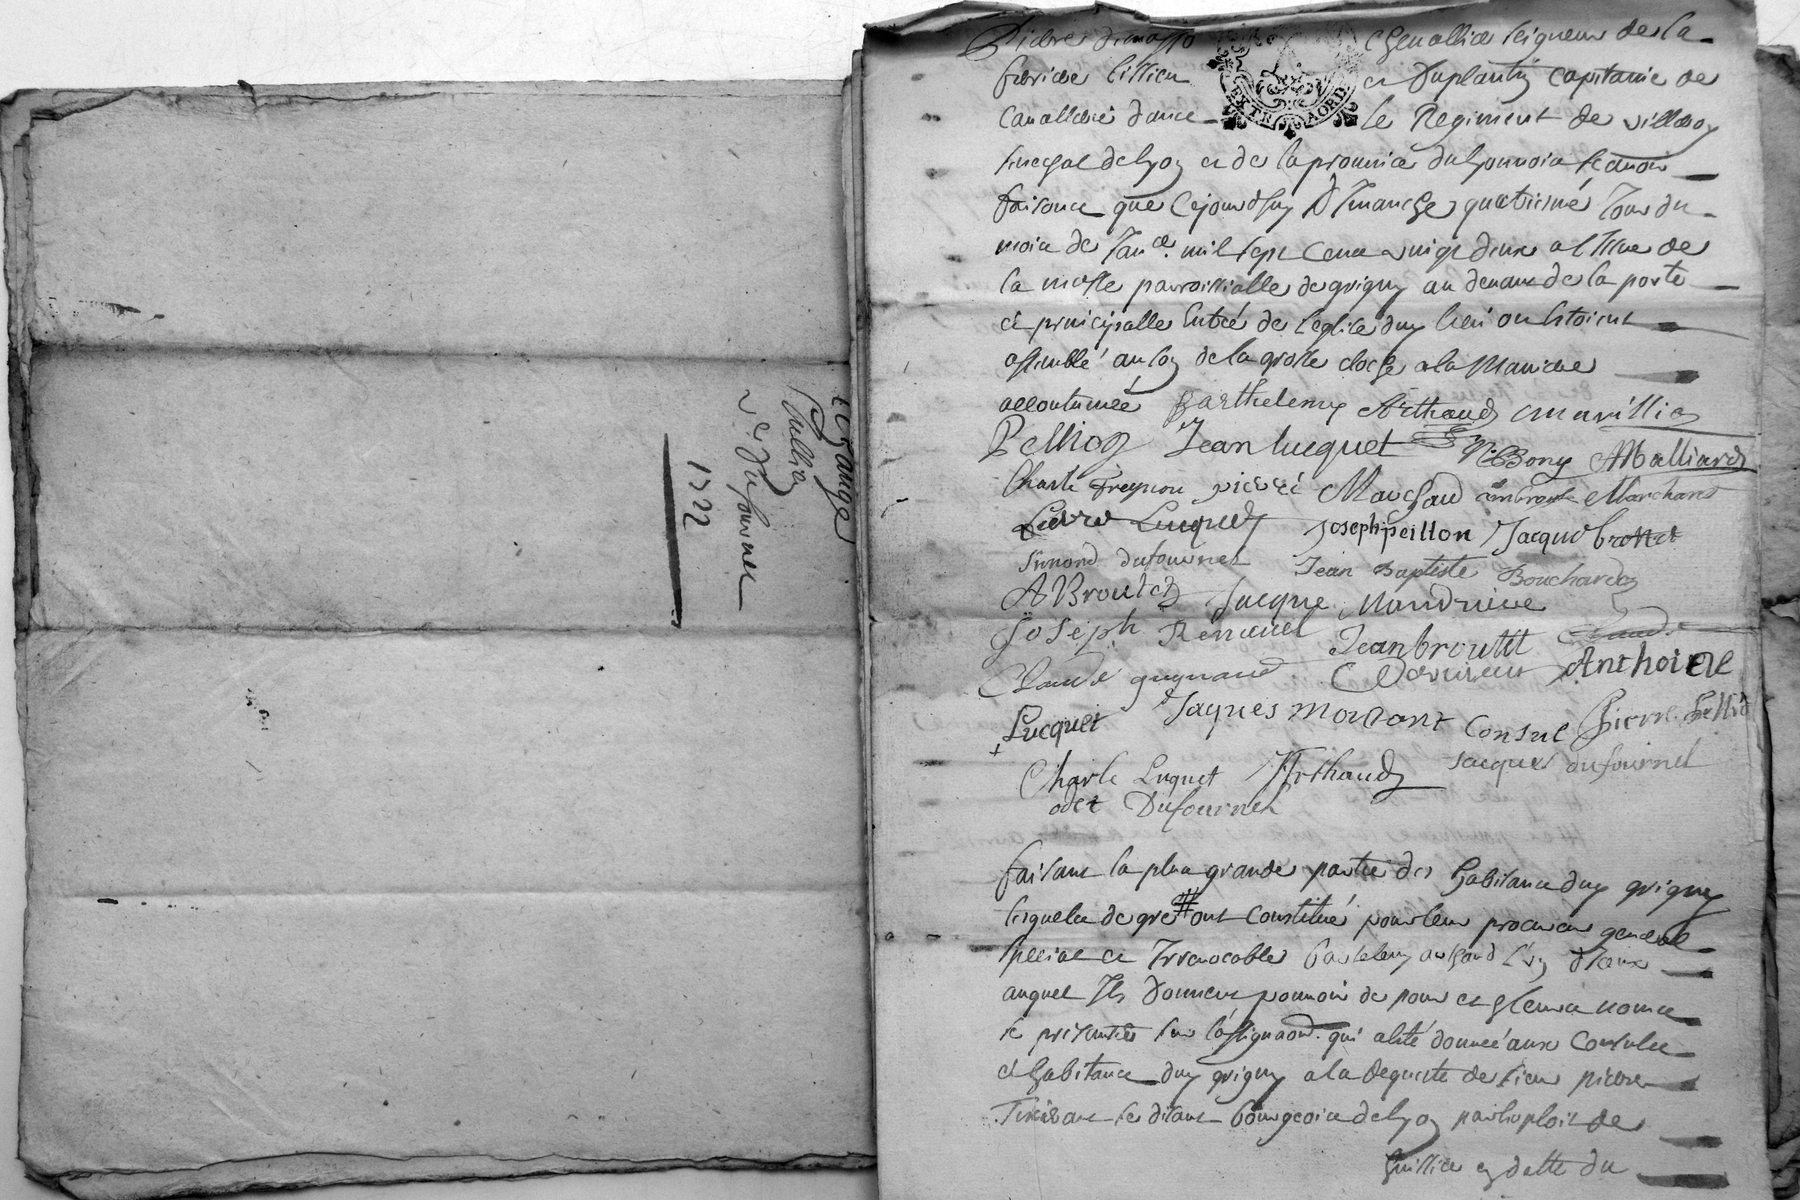 Grange
Jullien
Dufournel
1722
Pierre Dimasso chevallier seigneur de la
EXTRAORD
feriere sissieu et Duplantin capitaine de
Cavallerie dance le Regiment de villeroy
senechal de lyon et de la province du lyonnois scavoir
faisons que cejourdhuy Dimanche quatriesme Jour du
mois de Jan.er mil sept cent vingt deux a lissue de
la messe parroissialle de grigny au devant de la porte
et principalle entrée de leglise duy lieu ou estoient
assemblé au son de la grosse cloche a la maniere
accoutumée Barthelemy Arthaud
Pellion Jean lucquet Bony AMalliard
Charle Freynon pierre Marchand ambroise Marchant
pierre Lucquet Joseph peillon Jacque brottet
simond dufournel Jean Baptiste Bouchardon
ABroutet Jacque Mandrine
Joseph Remenel Jean broutet Claude
Claude guynand Anthoine
Lucquet Jaques mortant Consul Pierre
Charle Luquet Arthaud Jacques dufournel
odet Dufournel
faisant la plus grande partie des habitants duy grigny
lesquels de gre # ont Constitué pour leur procureur general
special et Irrevocable bartelemy arthaud l'un d'ceux
auquel Ils Donnent pouvoir de pour et
se presenter sur lassignaon qui a esté donnée aux Consuls
et habitants duy grigny a la Requeste de sieur pierre
se disant bourgeois de lyon par exploit de
Jullien en datte du